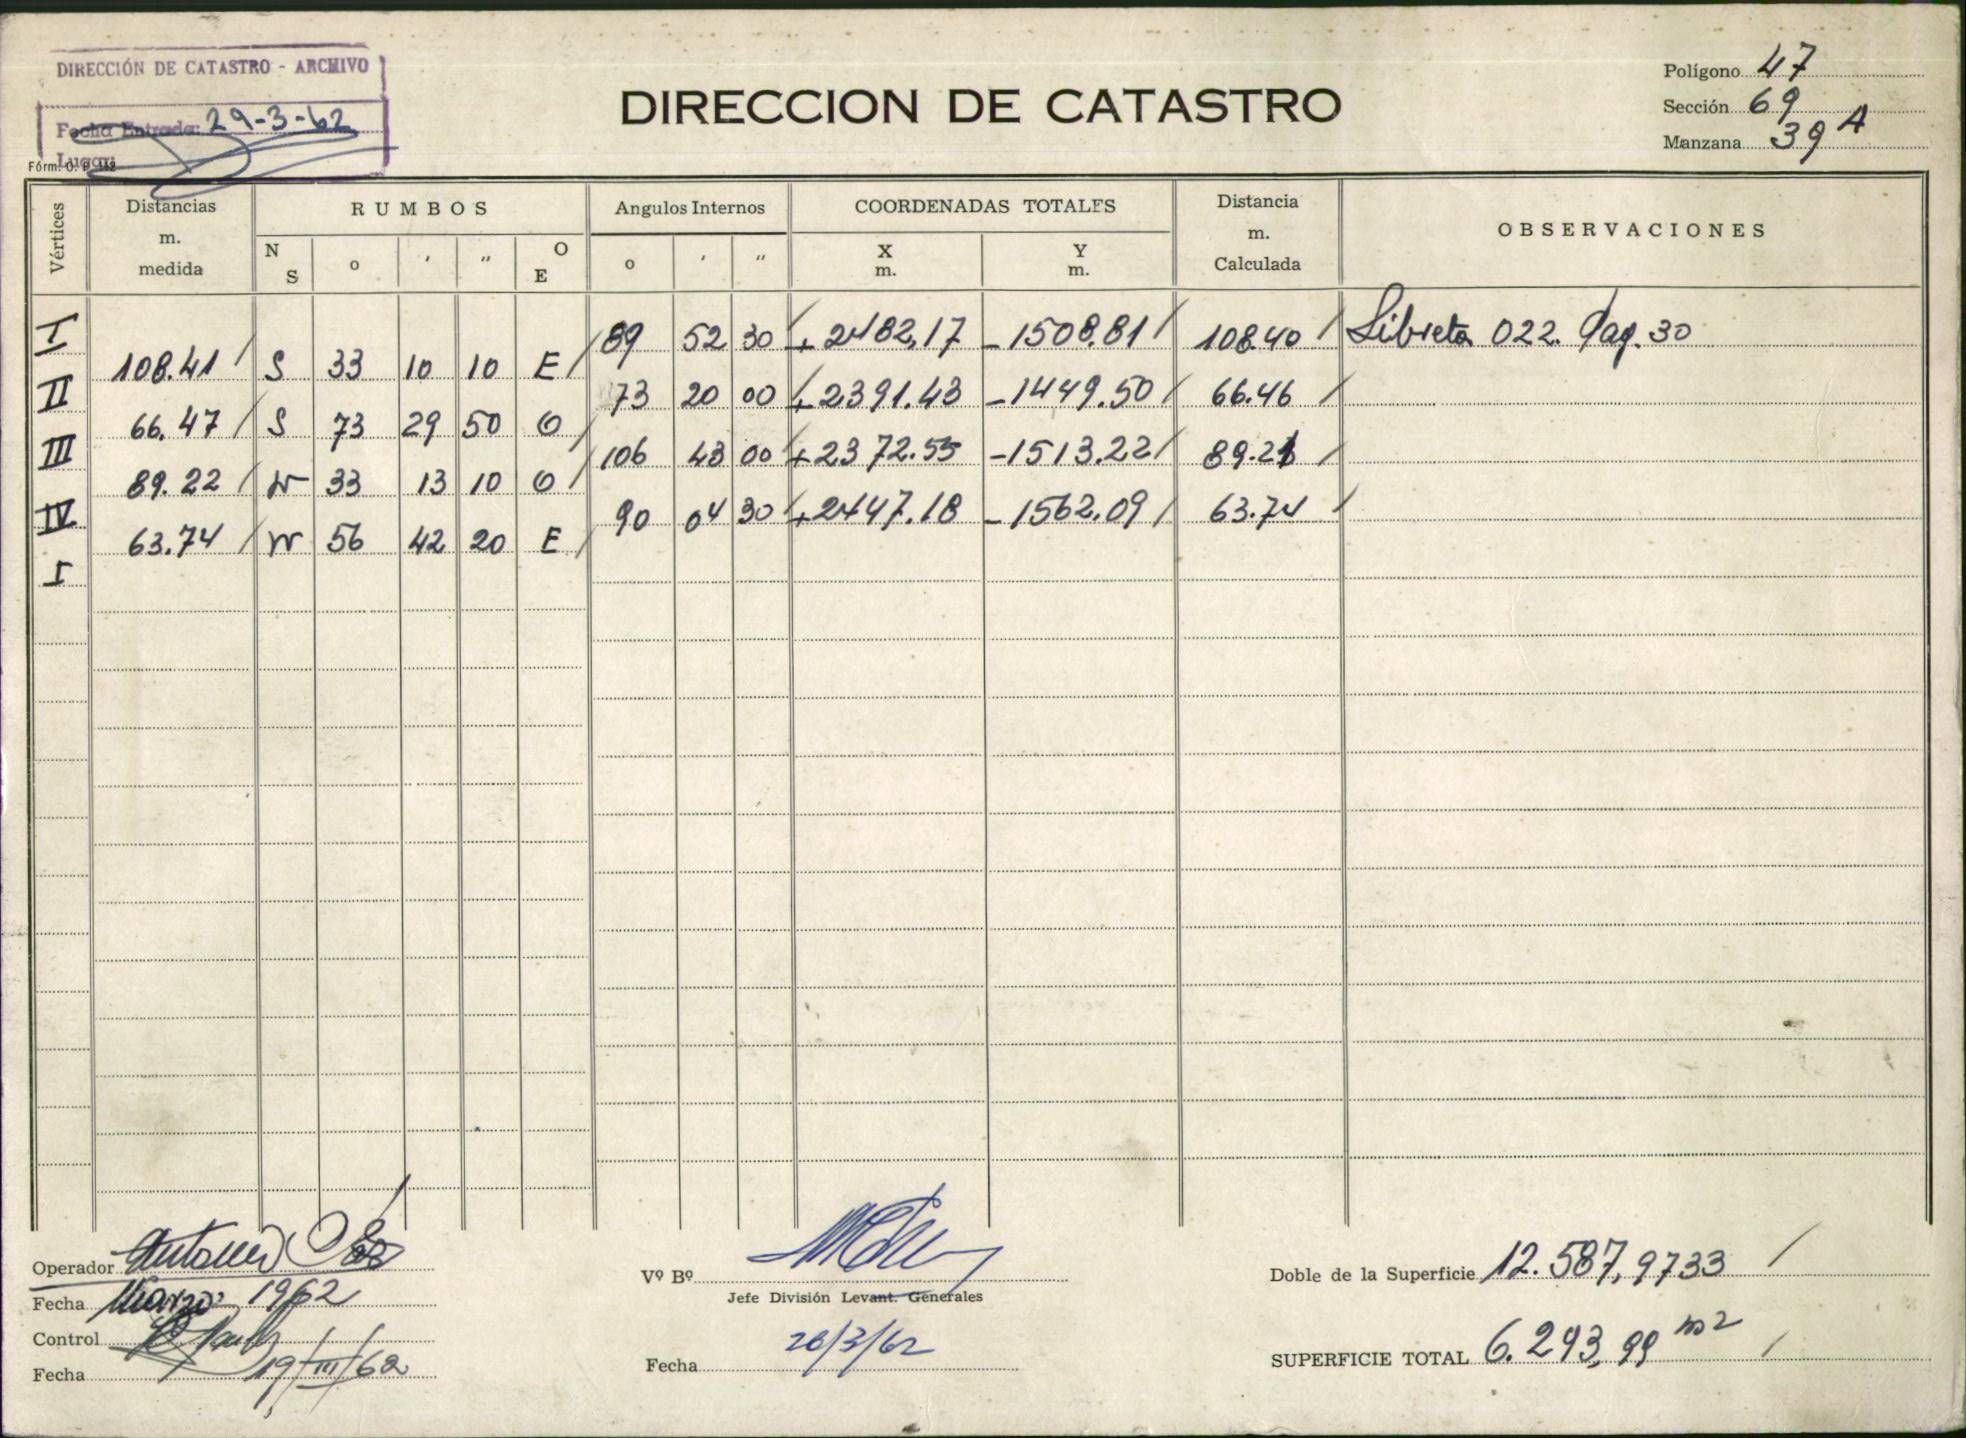 DIRECCIÓN DE CATASTRO - ARCHIVO
Fecha Entrada: 29-3-62
Lugar:
Fórm. O. P. 142
DIRECCION DE CATASTRO
Polígono 47
Sección 69
Manzana 39 A
Vértices Distancias m. medida RUMBOS Angulos Internos COORDENADAS TOTALES Distancia m. Calculada OBSERVACIONES
N S o ' " O E o ' " X m. Y m.
I 89 52 30 +2482,17 -1508.81 108.40 Libreta 022. Pag. 30
108.41 S 33 10 10 E
II 73 20 00 +2391.43 -1449.50 66.46
66.47 S 73 29 50 O
III 106 43 00 +2372.55 -1513.22 89.21
89.22 N 33 13 10 O
IV 90 04 30 +2447.18 -1562.09 63.74
63.74 N 56 42 20 E
I
Operador Antonio
Fecha Marzo 1962
Control
Fecha 19/III/62
Vº Bº
Jefe División Levant. Generales
Fecha 26/3/62
Doble de la Superficie 12.587,9733
SUPERFICIE TOTAL 6.293,99 m2